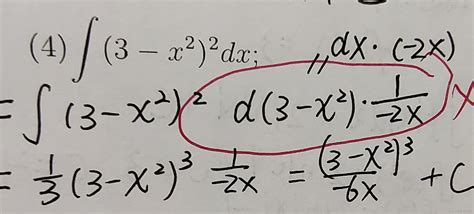 (4) ∫(3 − x²)²dx;
dx·(-2x)
= ∫(3-x²)² d(3-x²)·1/-2x X
= 1/3 (3-x²)³ 1/-2x = (3-x²)³/-6x + C